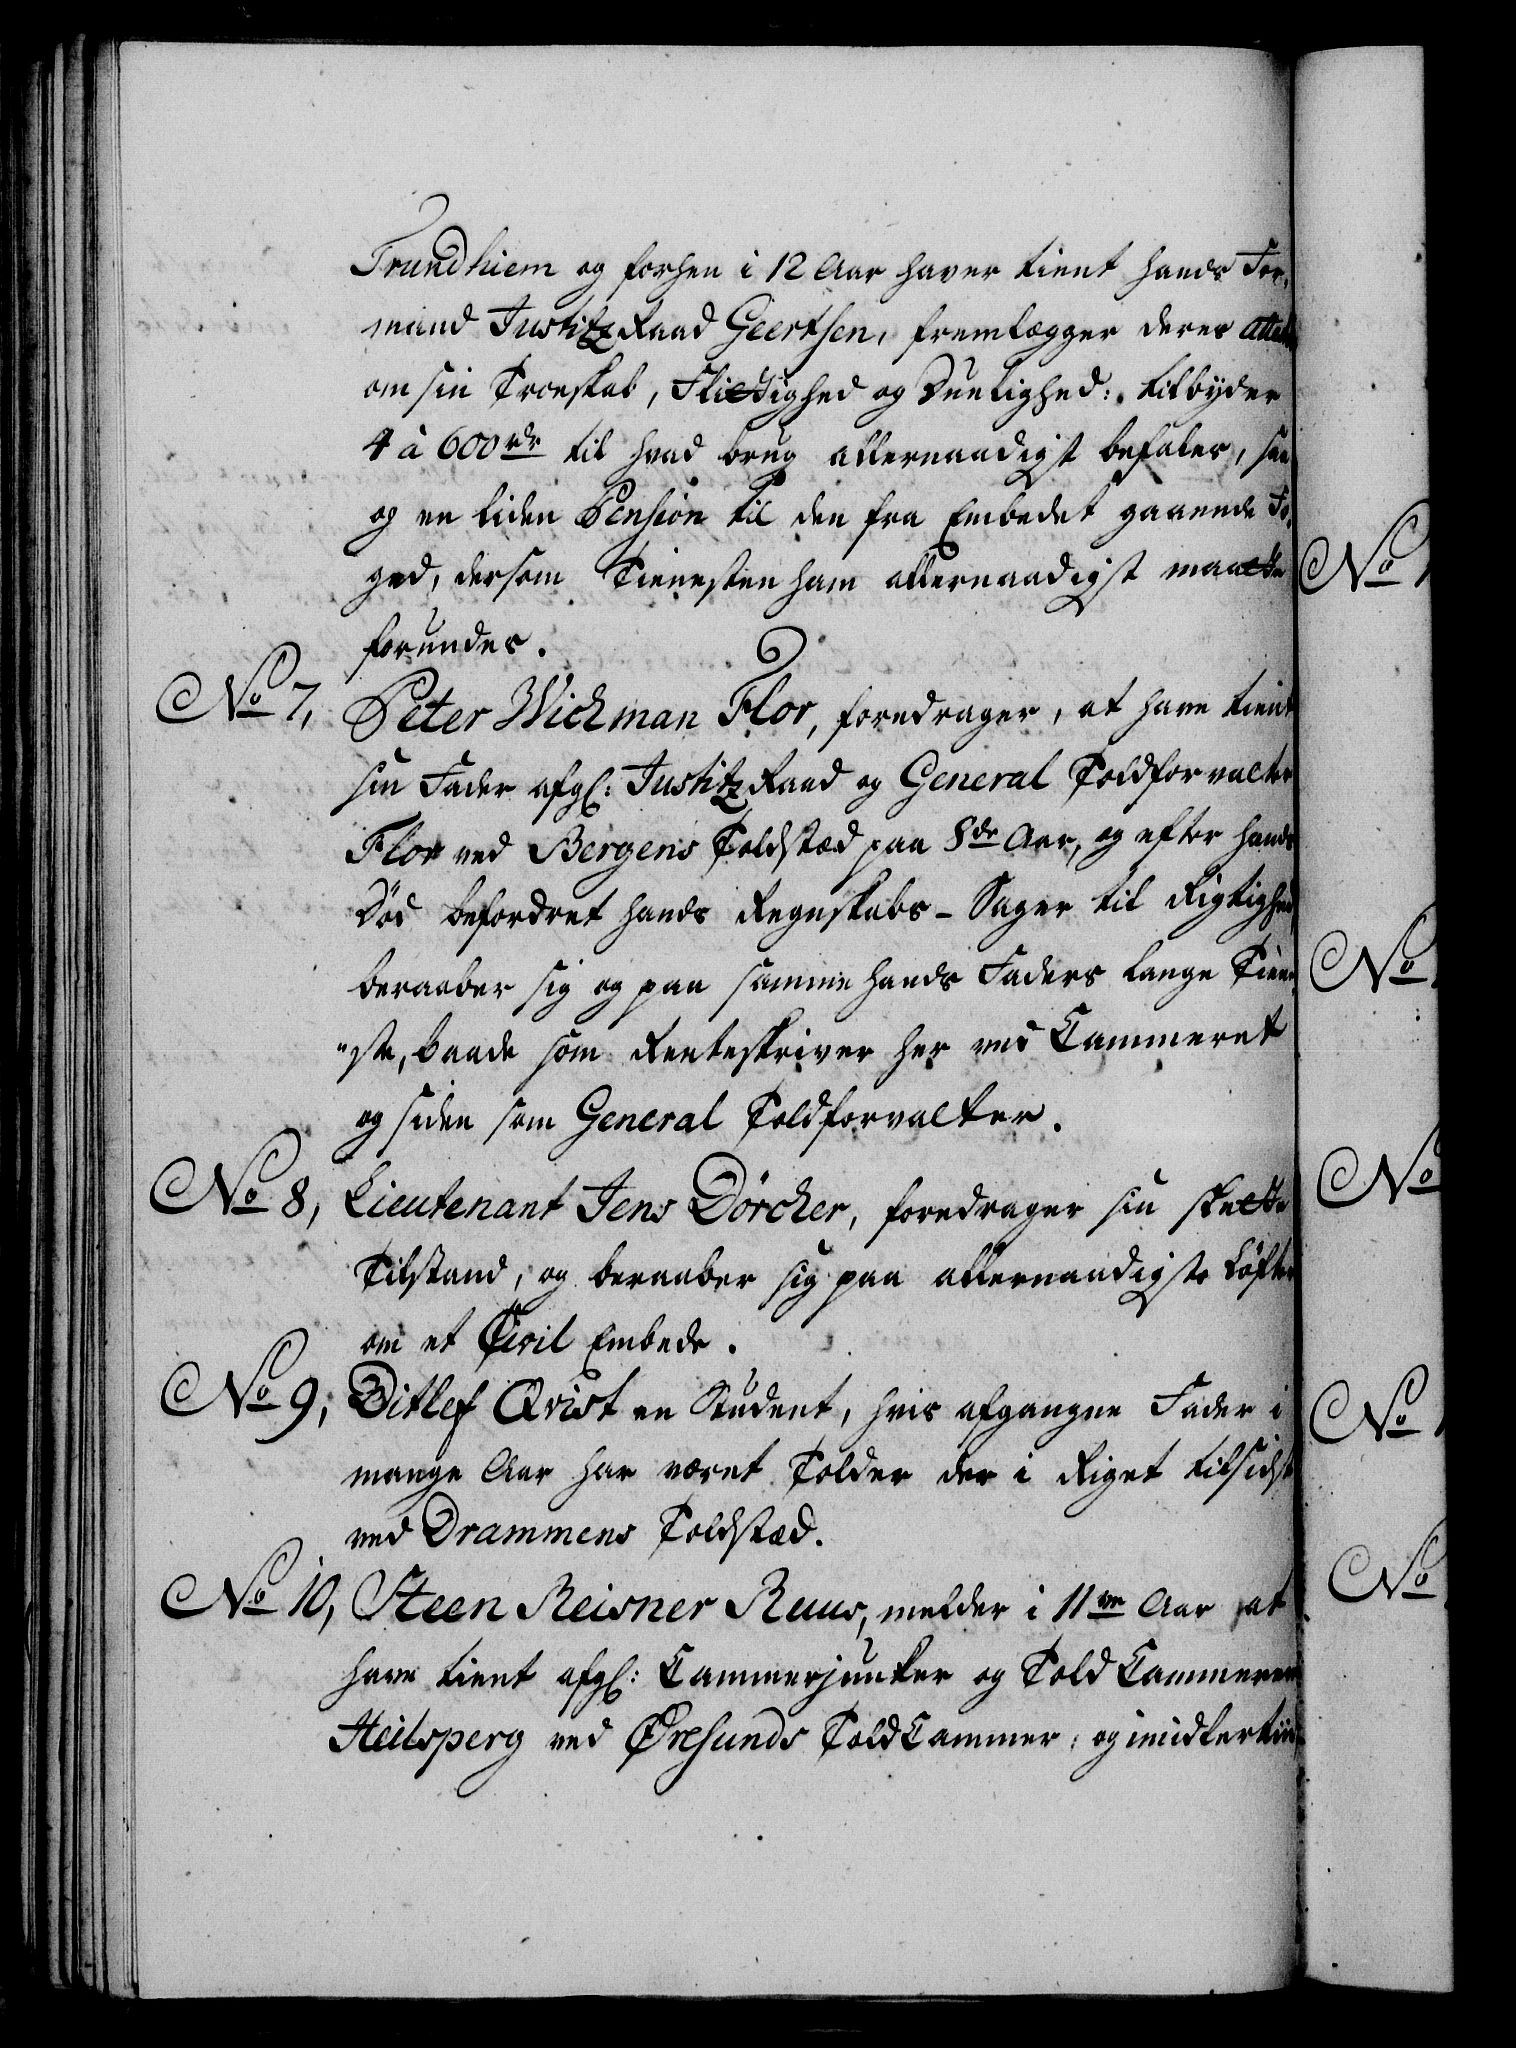 Trundhiem og forhen i 12 Aar haver tient hands For,
mand Justitz Raad Geertsen, fremlægger deres attest
om sin Troeskab, Flittighed og Duelighed: tilbyder
4 à 600 rdr til hvad brug allernaadigst befales, saa
og en liden Pension til den fra Embedet gaaende Fo,
ged, dersom Tienesten ham allernaadigst maatte
forundes.
No 7, Peter Wichman Flor, foredrager, at have tient
sin Fader afgl: Justitz Raad og General Toldforvalter
Flor ved Bergens Toldsted paa 8de Aar, og efter hands
Død befordret hands Regnskabs-Sager til Rigtighed,
beraaber sig og paa samme hands Faders lange Tiene-
"ste, baade som Renteskriver her ved Cammeret
og siden som General Toldforvalter.
No 8, Lieutenant Jens Dörcher, foredrager sin slette
Tilstand, og beraaber sig paa allernaadigste Løfte
om et Civil Embede.
No 9, Ditlef Qvist en Student, hvis afgangne Fader i
mange Aar har været Tolder der i Riget tilsidst
ved Drammens Toldsted.
No 10, Steen Reisner Ruus, melder i 11ve Aar at
have tient afgl: Cammerjunker og Told Cammerer
Heilsperg ved Øresunds Told Cammer, og imidlertiid
No
No
No
No
No